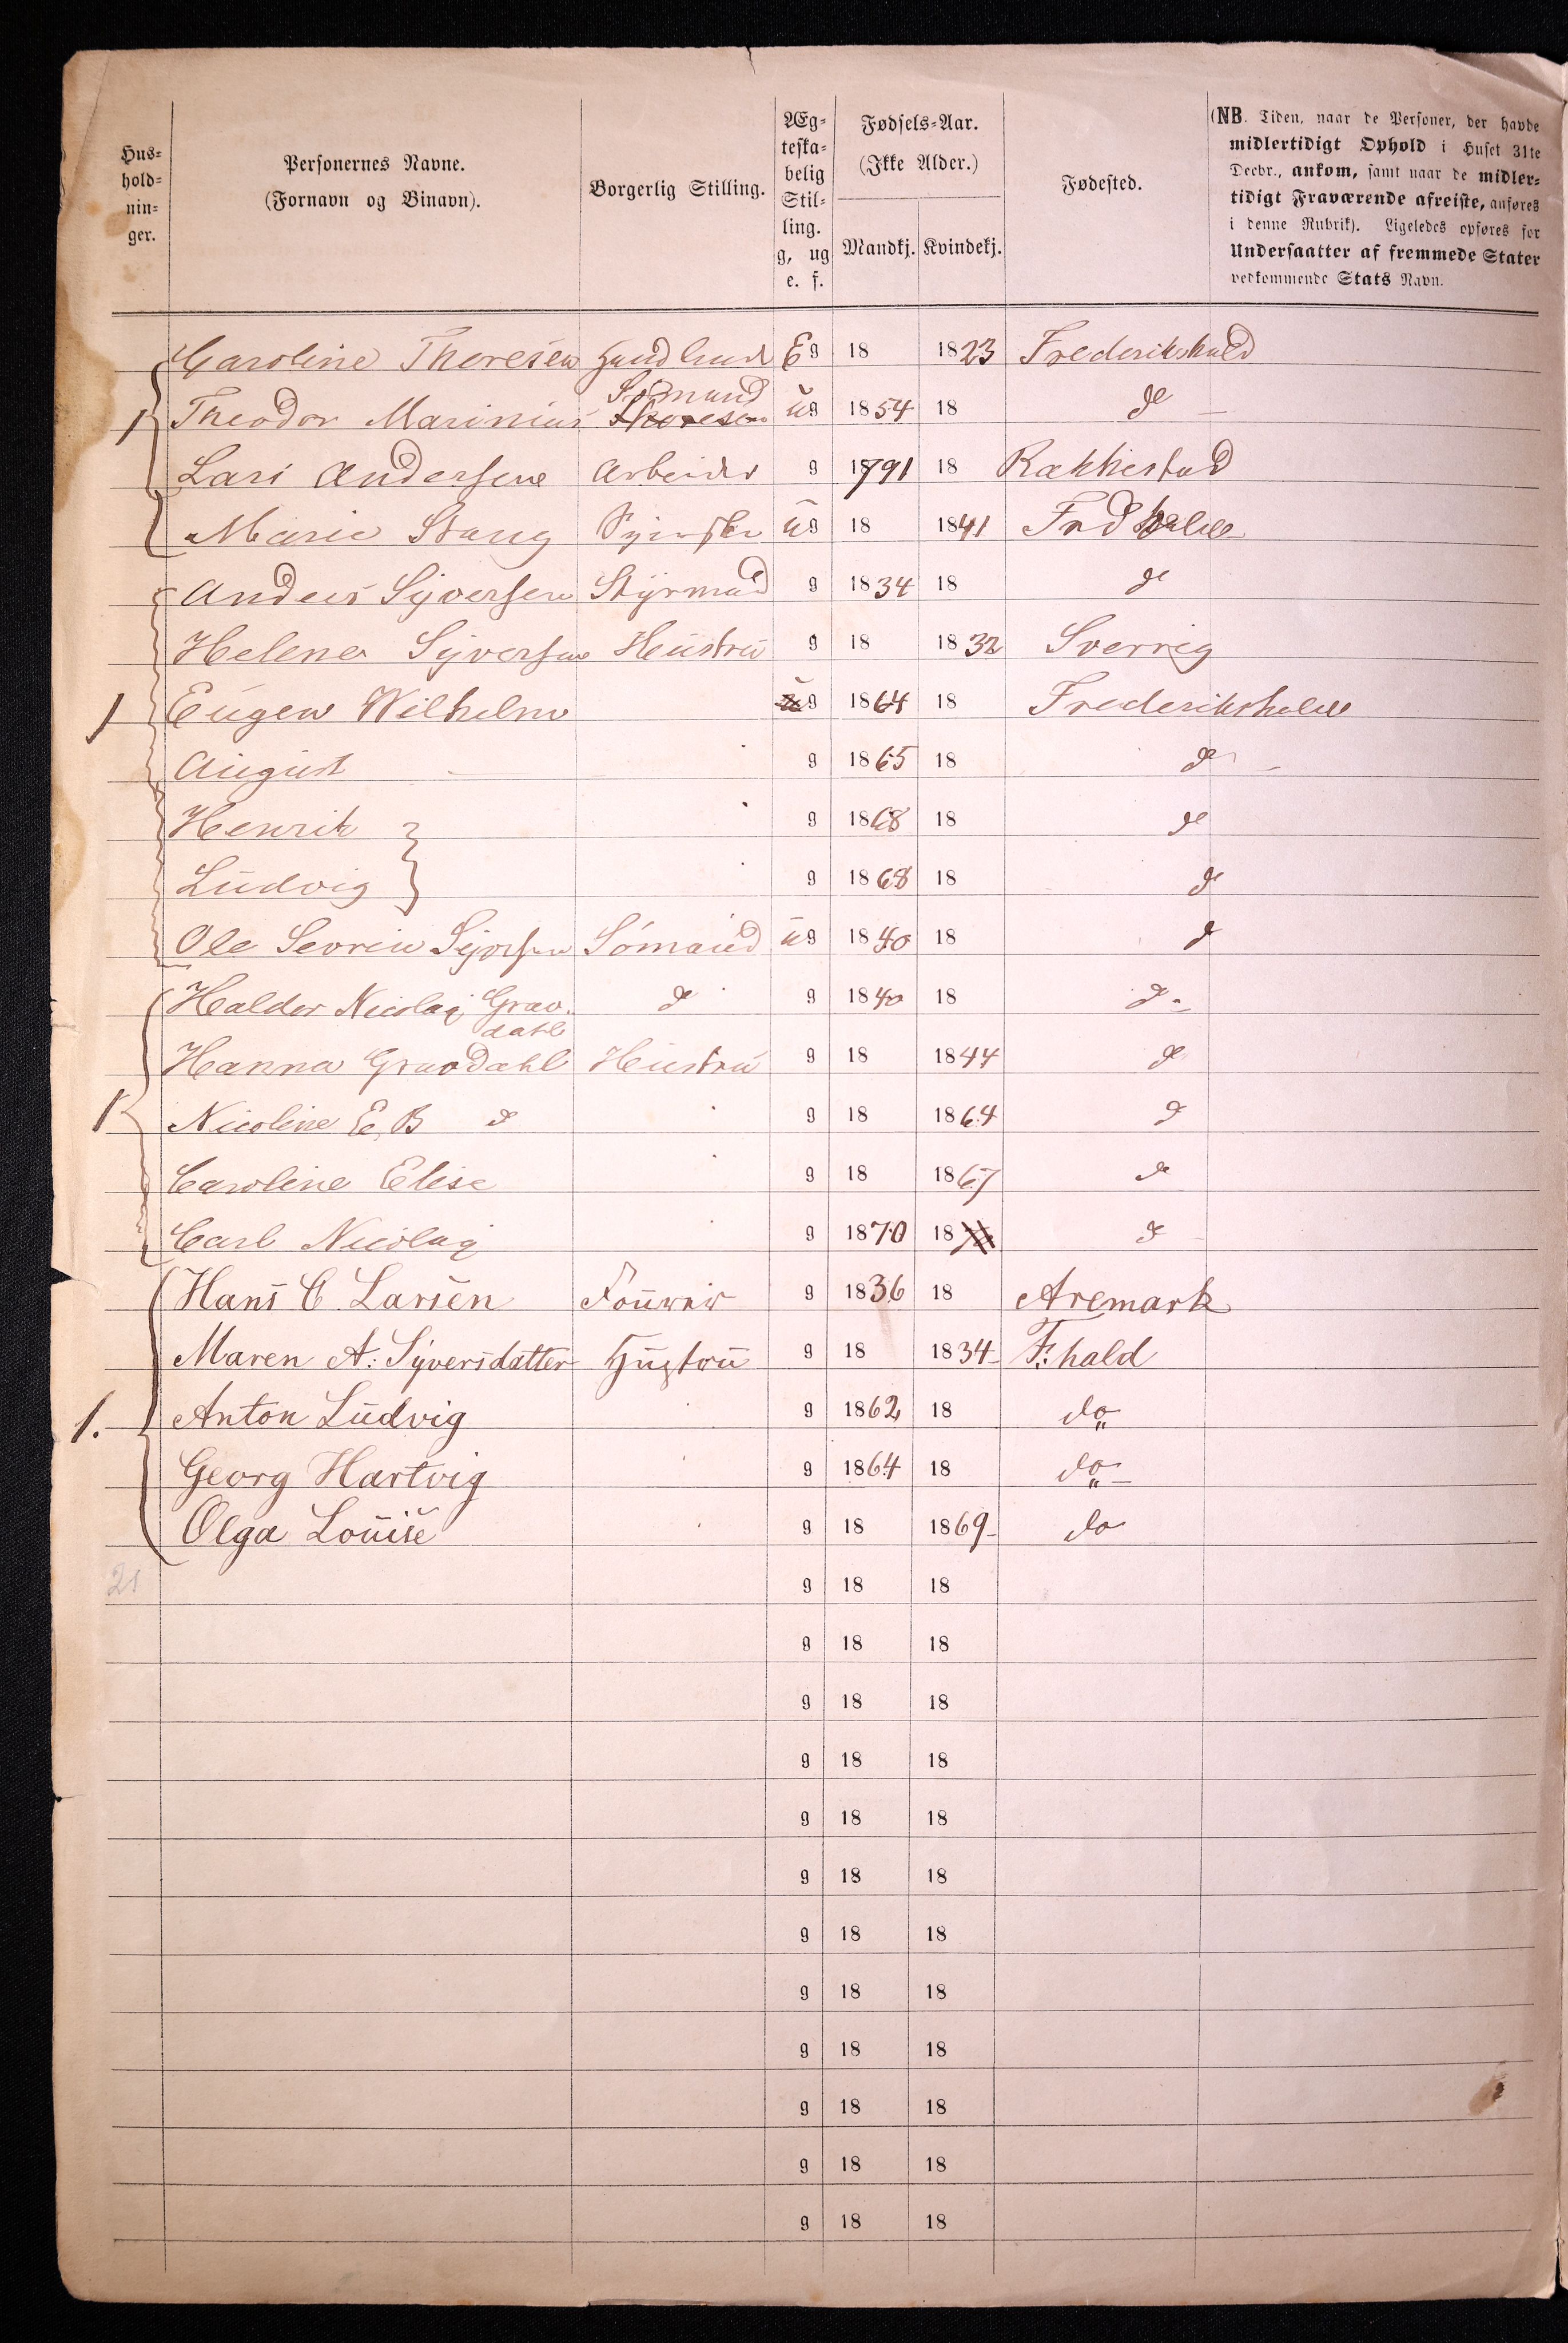 Hus-
hold-
nin-
ger.
Personernes Navne.
(Fornavn og Binavn).
Borgerlig Stilling.
Æg-
teska-
belig
Stil-
ling.
g, ug
e. f.
Fødsels-Aar.
(Ikke Alder.)
Mandkj. Kvindekj.
Fødested.
(NB. Tiden, naar de Personer, der havde
midlertidigt Ophold i Huset 31te
Decbr., ankom, samt naar de midler-
tidigt Fraværende afreiste, anføres
i denne Rubrik). Ligeledes opføres for
Undersaatter af fremmede Stater
vedkommende Stats Navn.
Caroline Thoresen E g 18 1823 Frederikshald
Sømand
1 Theodor Marinius Thoresen u g 1854 18 do
Lars Andersen Arbeider g 1791 18 Rakkestad
Marie Stang u g 18 1841 Frdhald
Anders Syversen Styrmand g 1834 18 do
Helene Syversen Hustru g 18 1832 Sverrig
1 Eugen Wilhelm u g 1864 18 Frederikshald
August g 1865 18 do
Henrik g 1868 18 do
Ludvig g 1868 18 do
Ole Sevrin Syversen Sømand u g 1840 18 do
Haldor Nicolai Grav- do g 1840 18 do
dahl
Hanna Gravdahl Hustru g 18 1844 do
1 Nicoline E. B do g 18 1864 do
Caroline Elise g 18 1867 do
Carl Nicolai g 1870 18 do
Hans C. Larsen g 1836 18 Aremark
Maren A: Syversdatter Hustru g 18 1834 F:hald
1. Anton Ludvig g 1862 18 do
Georg Hartvig g 1864 18 do
Olga Louise g 18 1869 do
21 g 18 18
g 18 18
g 18 18
g 18 18
g 18 18
g 18 18
g 18 18
g 18 18
g 18 18
g 18 18
g 18 18
g 18 18